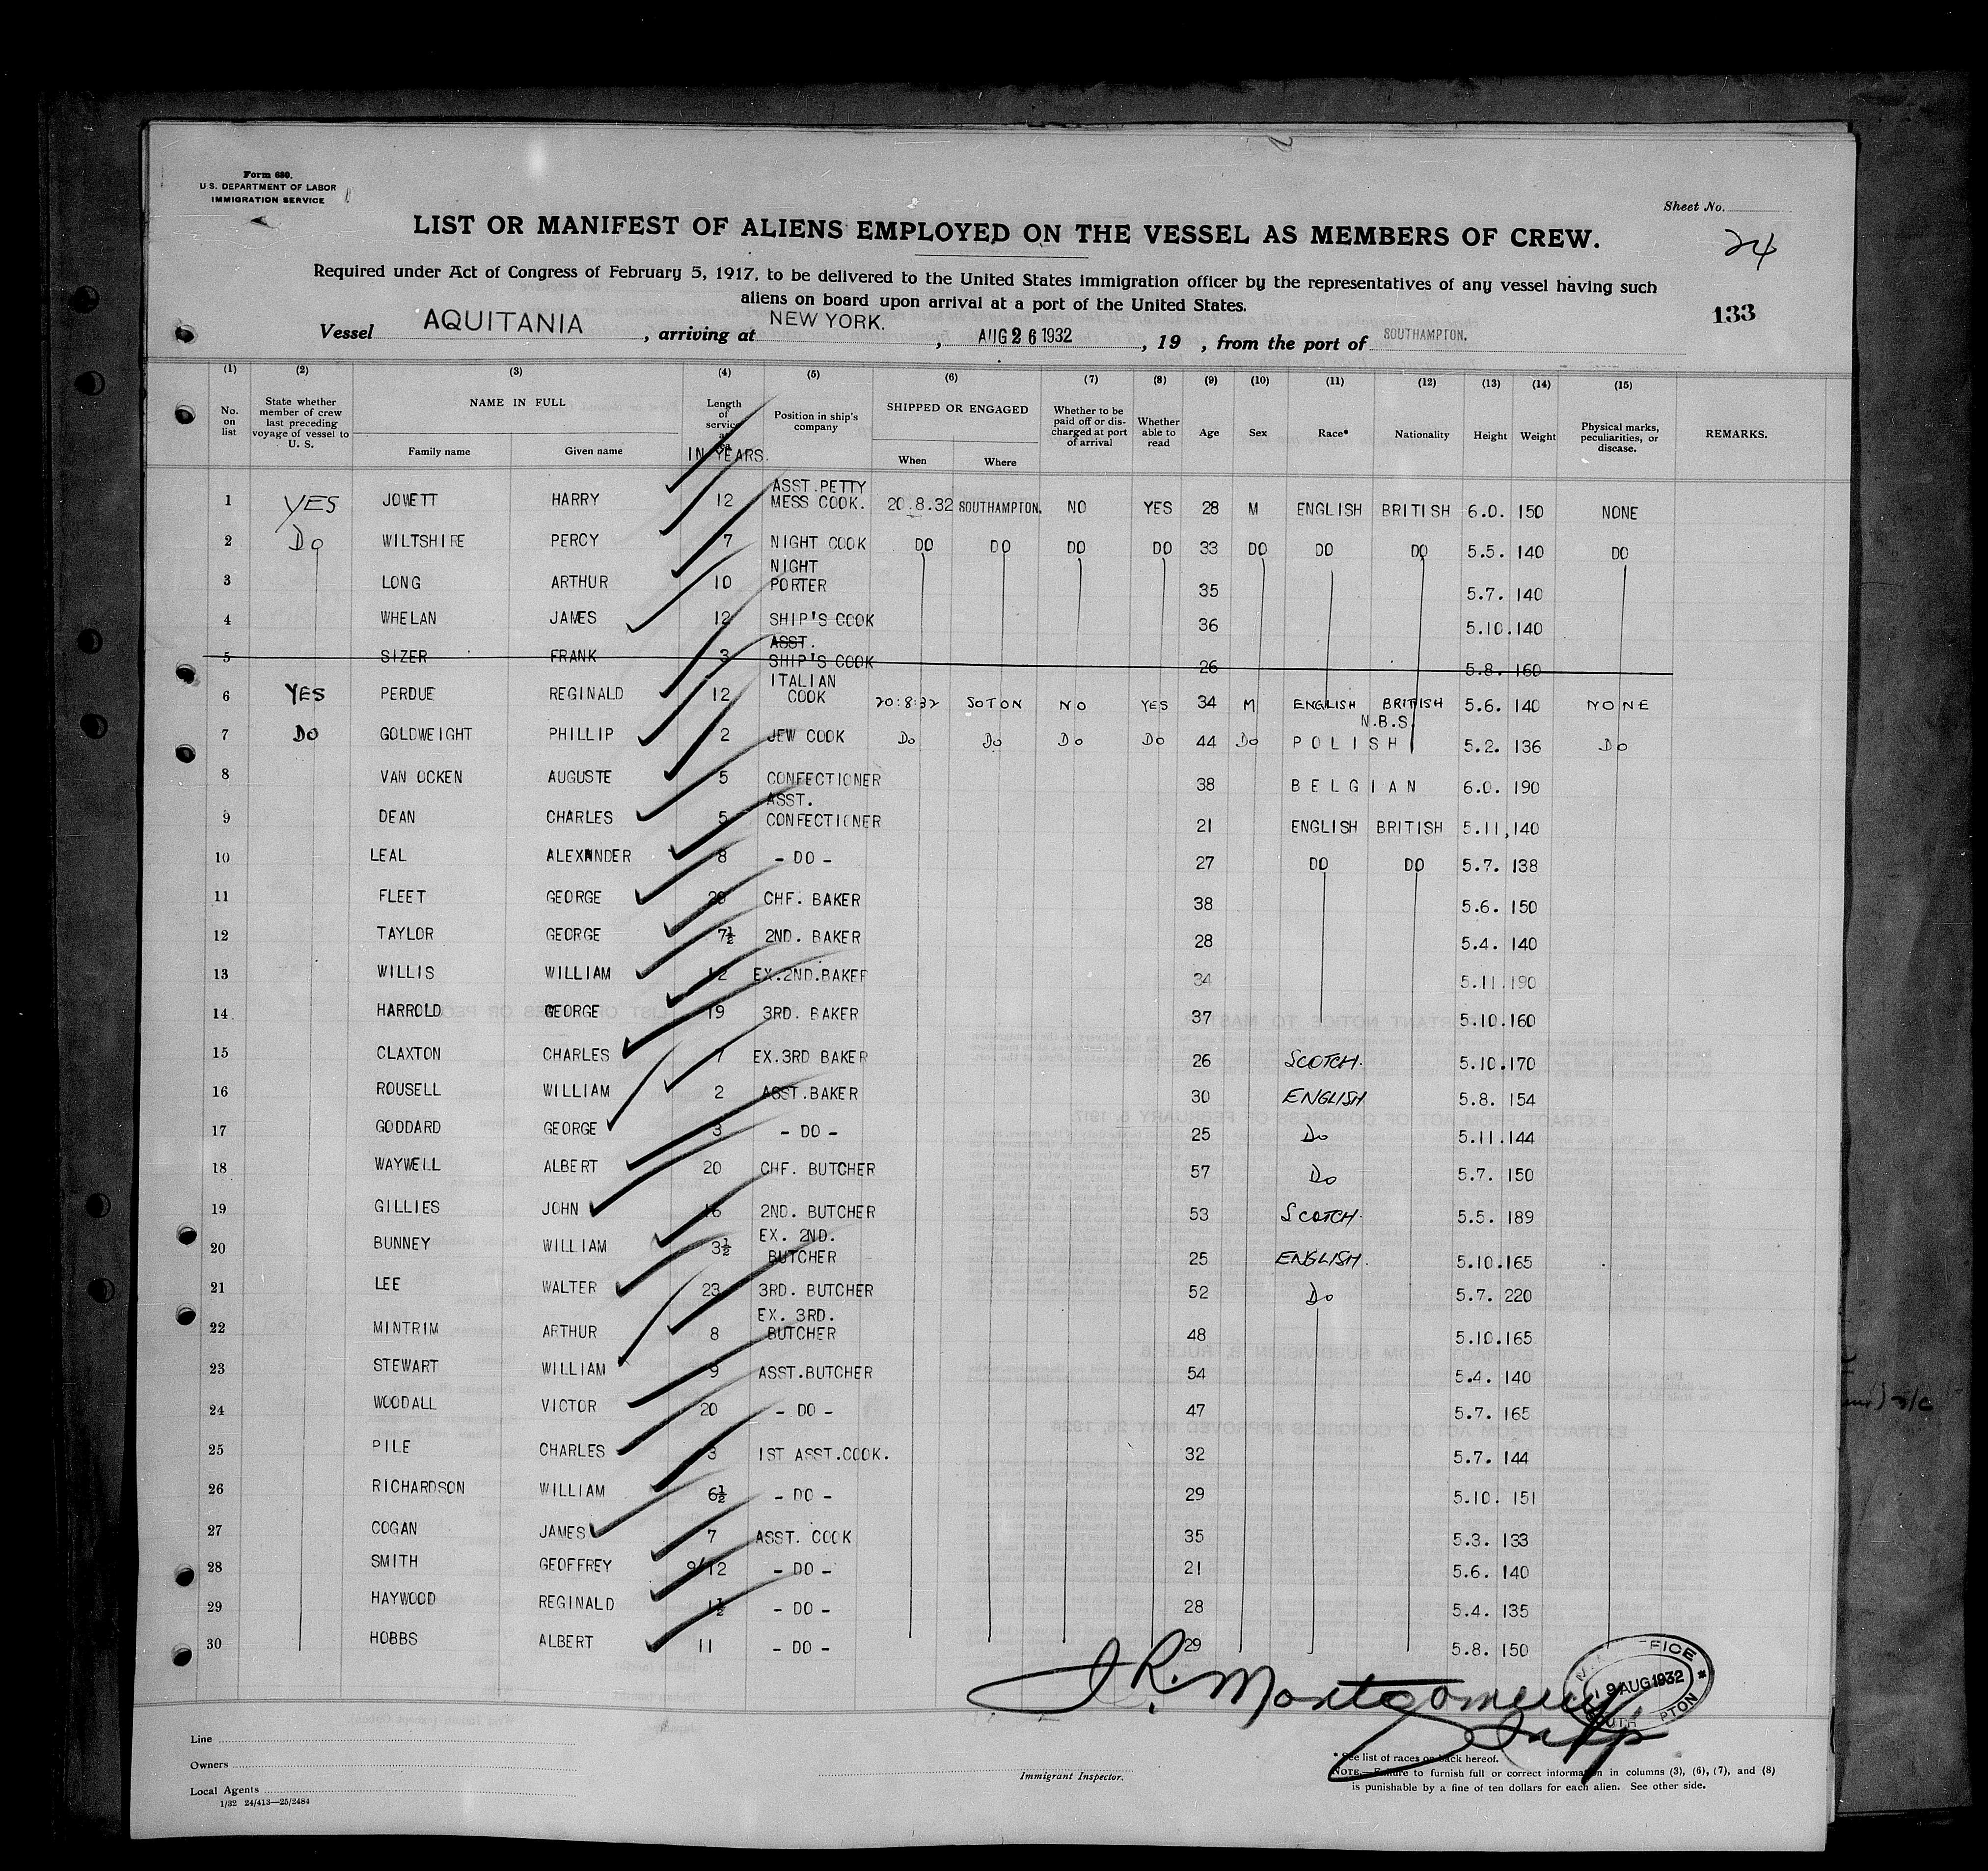 Form 680.
U.S. DEPARTMENT OF LABOR
IMMIGRATION SERVICE
Sheet No.
24
LIST OR MANIFEST OF ALIENS EMPLOYED ON THE VESSEL AS MEMBERS OF CREW.
Required under Act of Congress of February 5, 1917, to be delivered to the United States immigration officer by the representatives of any vessel having such
aliens on board upon arrival at a port of the United States.
133
Vessel AQUITANIA, arriving at NEW YORK., AUG 26 1932, 19 , from the port of SOUTHAMPTON.
(1) (2) (3) (4) (5) (6) (7) (8) (9) (10) (11) (12) (13) (14) (15)
No. on list State whether member of crew last preceding voyage of vessel to U. S. NAME IN FULL Family name Given name Length of service IN YEARS. Position in ship's company SHIPPED OR ENGAGED When Where Whether to be paid off or discharged at port of arrival Whether able to read Age Sex Race* Nationality Height Weight Physical marks, peculiarities, or disease. REMARKS.
1 YES JOWETT HARRY 12 ASST.PETTY MESS COOK. 20.8.32 SOUTHAMPTON. NO YES 28 M ENGLISH BRITISH 6.0. 150 NONE
2 Do WILTSHIRE PERCY 7 NIGHT COOK DO DO DO DO 33 DO DO DO 5.5. 140 DO
3 LONG ARTHUR 10 NIGHT PORTER 35 5.7. 140
4 WHELAN JAMES 12 SHIP'S COOK 36 5.10.140
5 SIZER FRANK 3 ASST. SHIP'S COOK 26 5.8. 160
6 YES PERDUE REGINALD 12 ITALIAN COOK 20:8:32 SOTON NO YES 34 M ENGLISH BRITISH 5.6. 140 NONE
7 DO GOLDWEIGHT PHILLIP 2 JEW COOK Do Do Do Do 44 Do POLISH N.B.S. 5.2. 136 Do
8 VAN OCKEN AUGUSTE 5 CONFECTIONER 38 BELGIAN 6.0. 190
9 DEAN CHARLES 5 ASST. CONFECTIONER 21 ENGLISH BRITISH 5.11,140
10 LEAL ALEXANDER 8 - DO - 27 DO DO 5.7. 138
11 FLEET GEORGE 20 CHF. BAKER 38 5.6. 150
12 TAYLOR GEORGE 7½ 2ND. BAKER 28 5.4. 140
13 WILLIS WILLIAM 12 EX.2ND.BAKER 34 5.11.190
14 HARROLD GEORGE 19 3RD. BAKER 37 5.10.160
15 CLAXTON CHARLES 7 EX.3RD BAKER 26 SCOTCH. 5.10.170
16 ROUSELL WILLIAM 2 ASST.BAKER 30 ENGLISH 5.8. 154
17 GODDARD GEORGE 3 - DO - 25 Do 5.11.144
18 WAYWELL ALBERT 20 CHF. BUTCHER 57 Do 5.7. 150
19 GILLIES JOHN 16 2ND. BUTCHER 53 SCOTCH. 5.5. 189
20 BUNNEY WILLIAM 3½ EX. 2ND. BUTCHER 25 ENGLISH. 5.10.165
21 LEE WALTER 23 3RD. BUTCHER 52 Do 5.7. 220
22 MINTRIM ARTHUR 8 EX. 3RD. BUTCHER 48 5.10.165
23 STEWART WILLIAM 9 ASST.BUTCHER 54 5.4. 140
24 WOODALL VICTOR 20 - DO - 47 5.7. 165
25 PILE CHARLES 3 1ST ASST.COOK. 32 5.7. 144
26 RICHARDSON WILLIAM 6½ - DO - 29 5.10. 151
27 COGAN JAMES 7 ASST. COOK 35 5.3. 133
28 SMITH GEOFFREY 9/12 - DO - 21 5.6. 140
29 HAYWOOD REGINALD 1½ - DO - 28 5.4. 135
30 HOBBS ALBERT 11 - DO - 29 5.8. 150
J R. Montgomery
19 AUG 1932
Line
Owners
Local Agents
1/32 24/413—25/2484
Immigrant Inspector.
* See list of races on back hereof.
NOTE.—Failure to furnish full or correct information in columns (3), (6), (7), and (8)
is punishable by a fine of ten dollars for each alien. See other side.